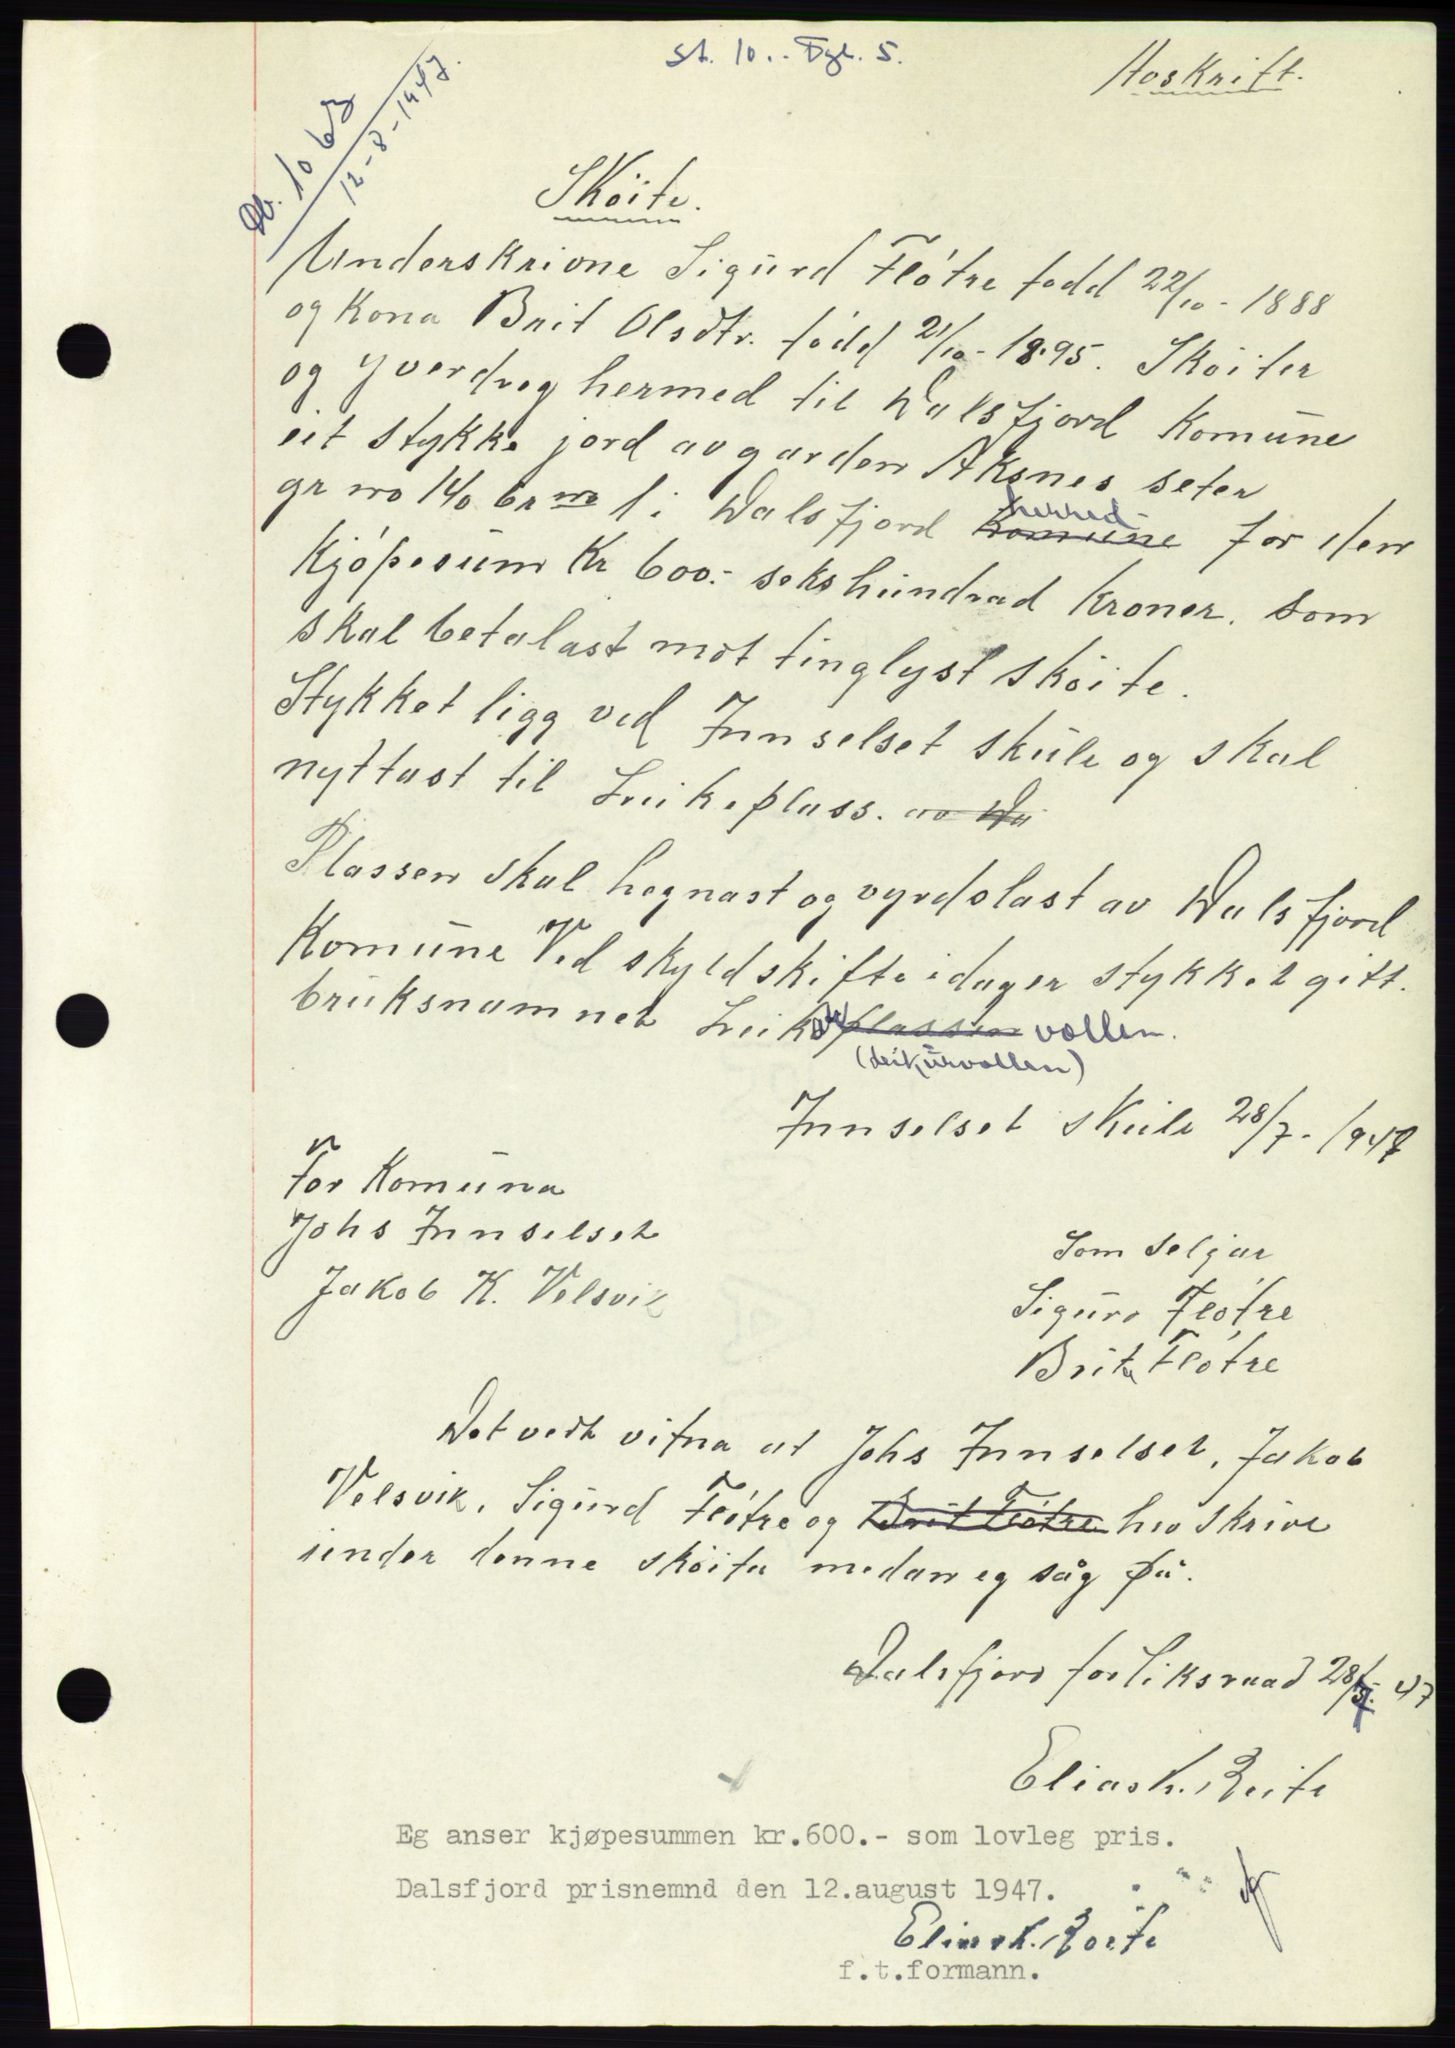 St. 10.. Tgl. 5.
Avskrift.
Db. 1063
12-8-1947.
Sköite.
Underskrivne Sigurd Flótre fodd 22/10 - 1888
og kona Brit Olsdtr. född 21/10 - 1895. Sköiter
og yverdreg hermed til Dalsfjord Komune
eit stykke jord av garden Aksnes seter
gr no 140 br no 1 i Dalsfjord komune herred for den
kjöpesum kr 600.- sekshundrad kroner. som
skal betalast mot tinglyst sköite.
Stykket ligg ved Innselset skule og skal
nyttast til Leikeplass. av Da
Plassen skal hegnast og vyrdslast av Dalsfjord
Komune Ved skyldskifte idag er stykket gitt.
bruksnamnet Leikarplassen vollen.
(Leikarvollen)
Innselset Skule 28/7 - 1947
For Komuna
Johs Innselset
Jakob K. Velsvik
Som Seljar
Sigurd Flótre
Brita Flótre
Det vert vitna at Johs Innselset, Jakob
Velsvik, Sigurd Flótre og Brit Flótre hev skrive
under denne sköita medan eg såg på.
Dalsfjord forliksraad 28/7- 47
Elias K. Reite
Eg anser kjøpesummen kr.600.- som lovleg pris.
Dalsfjord prisnemnd den 12.august 1947.
Elias K. Reite
f.t.formann.